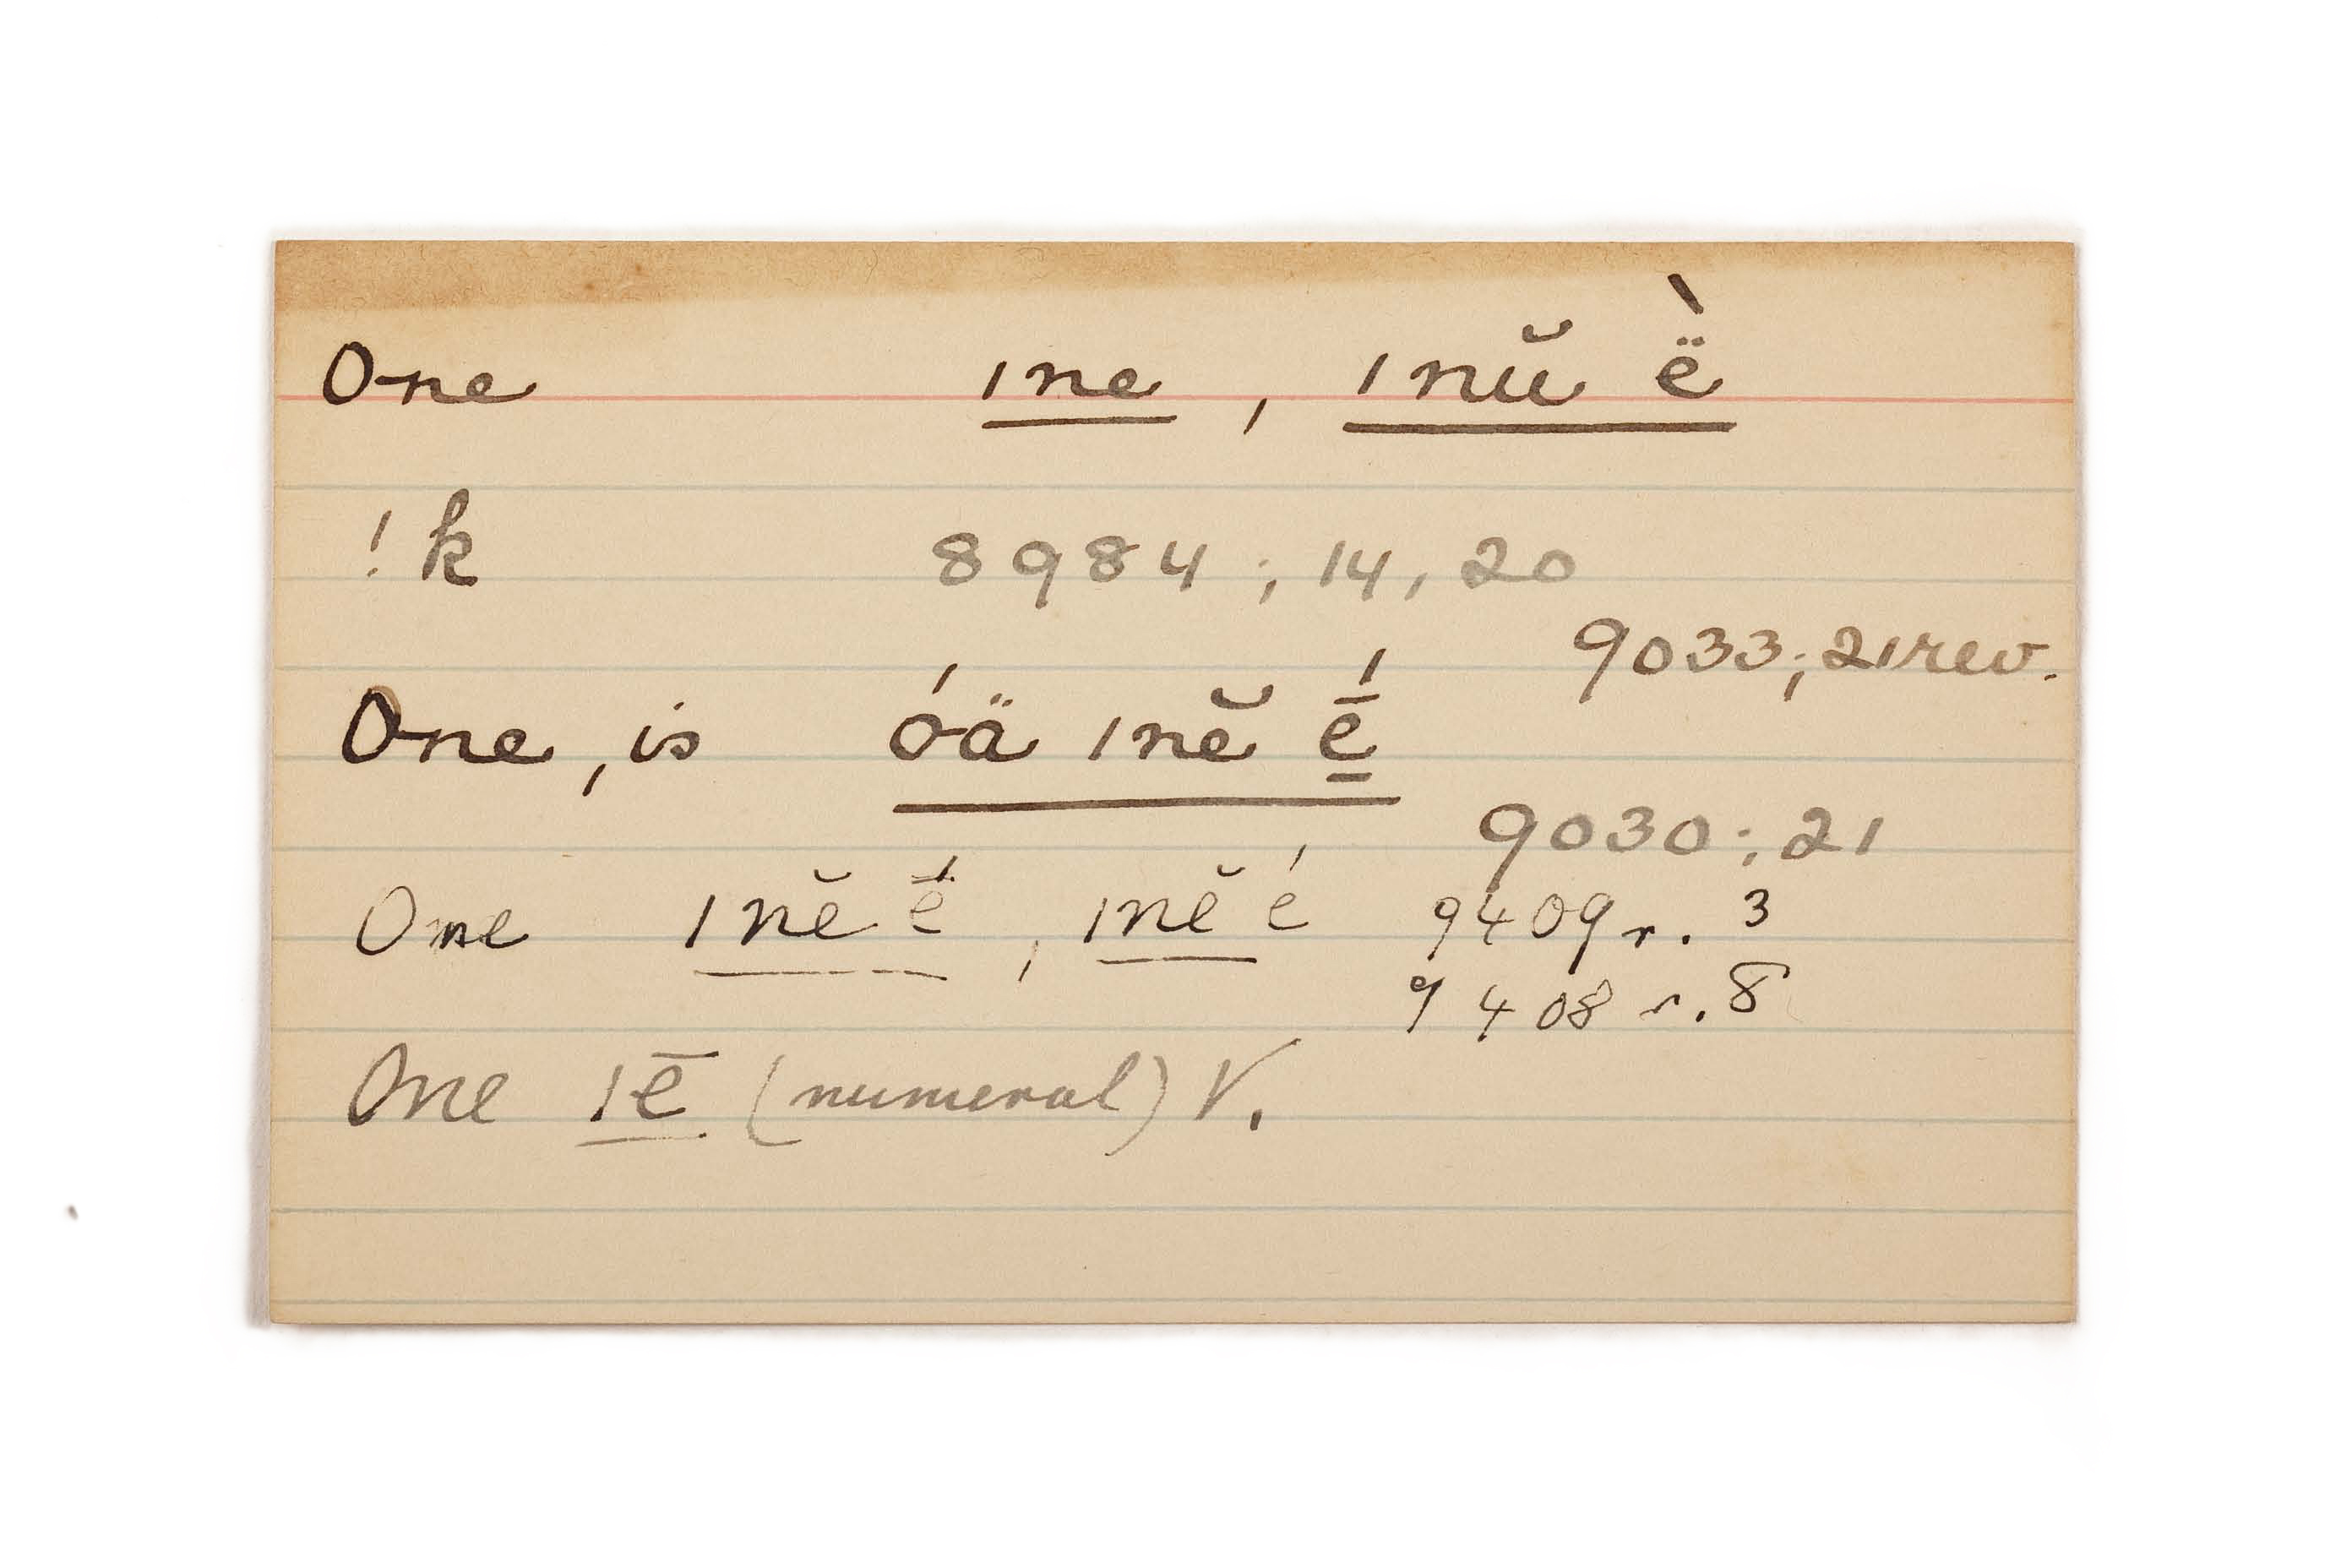 One ıne , ınŭ ë̀
!k 8984 ; 14, 20
9033 ; 21 rev.
One, is óä ınĕ ḗ̱
9030 ; 21
One ınĕ ḗ , ınĕ é 9409 r. 3
9408 r. 8
One ıē (numeral) V.